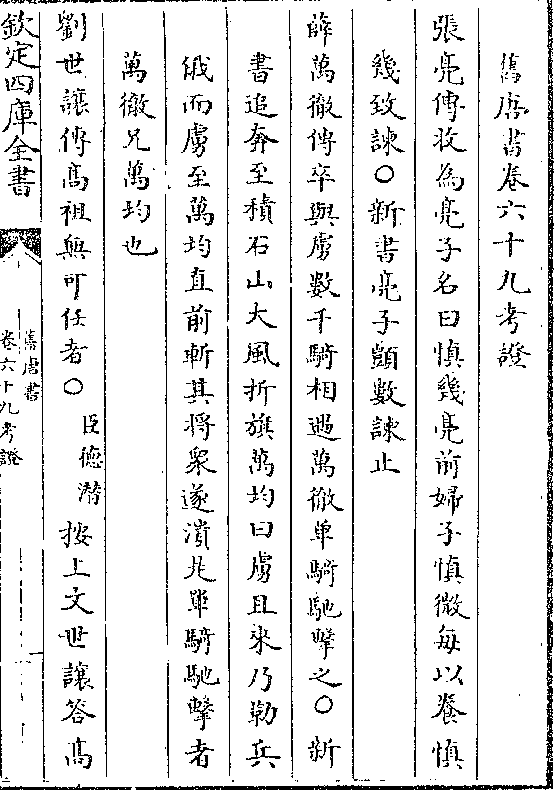 舊唐書卷六十九考證
張亮傳收為亮子名曰慎幾亮前婦子慎微每以養慎
幾致諫○新書亮子顗數諫止
薛萬徹傳卒與虜數千騎相遇萬徹單騎馳擊之○新
書追奔至積石山大風折旗萬均曰虜且來乃勒兵
俄而虜至萬均直前斬其將衆遂潰是單騎馳擊者
萬徹兄萬均也
劉世讓傳高祖無可任者○臣德潛按上文世讓答高
欽定四庫全書
舊唐書
卷六十九考證